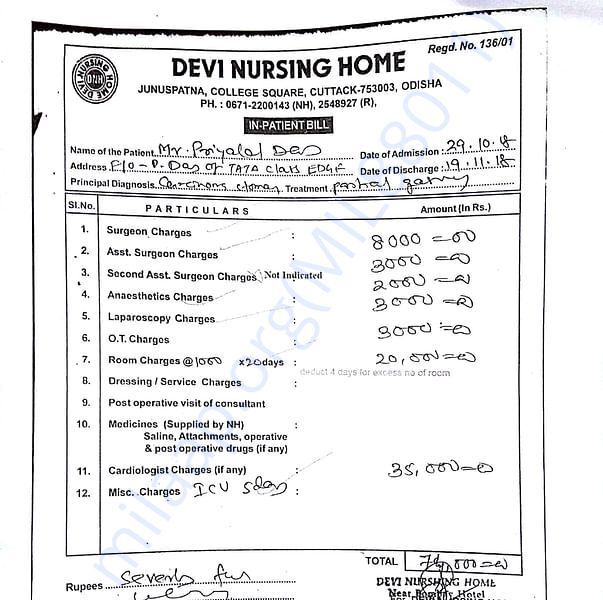 Regd. No. 136/01
DEVI NURSING HOME
DEVI NURSING HOME
DNH
JUNUSPATNA, COLLEGE SQUARE, CUTTACK-753003, ODISHA
PH. : 0671-2200143 (NH), 2548927 (R),
IN-PATIENT BILL
Name of the Patient Mr. Priyalal Das Date of Admission : 29.10.18
Address F/O - P. Das of TATA Class EDGE Date of Discharge : 19.11.18
Principal Diagnosis Treatment partial
Sl.No. PARTICULARS Amount (In Rs.)
1. Surgeon Charges : 8000 = 00
2. Asst. Surgeon Charges : 3000 = 00
3. Second Asst. Surgeon Charges Not Indicated 2000 = 00
4. Anaesthetics Charges : 3000 = 00
5. Laparoscopy Charges :
6. O.T. Charges : 3000 = 00
7. Room Charges @1000 x20days : 20,000 = 00
deduct 4 days for excess no of room
8. Dressing / Service Charges :
9. Post operative visit of consultant
10. Medicines (Supplied by NH) :
Saline, Attachments, operative
& post operative drugs (if any)
11. Cardiologist Charges (if any) : 35,000 = 00
12. Misc. Charges ICU 5 day :
TOTAL 74,000 = 00
Rupees Seventy four
DEVI NURSING HOME
Near Bombay Hotel
milaap.org